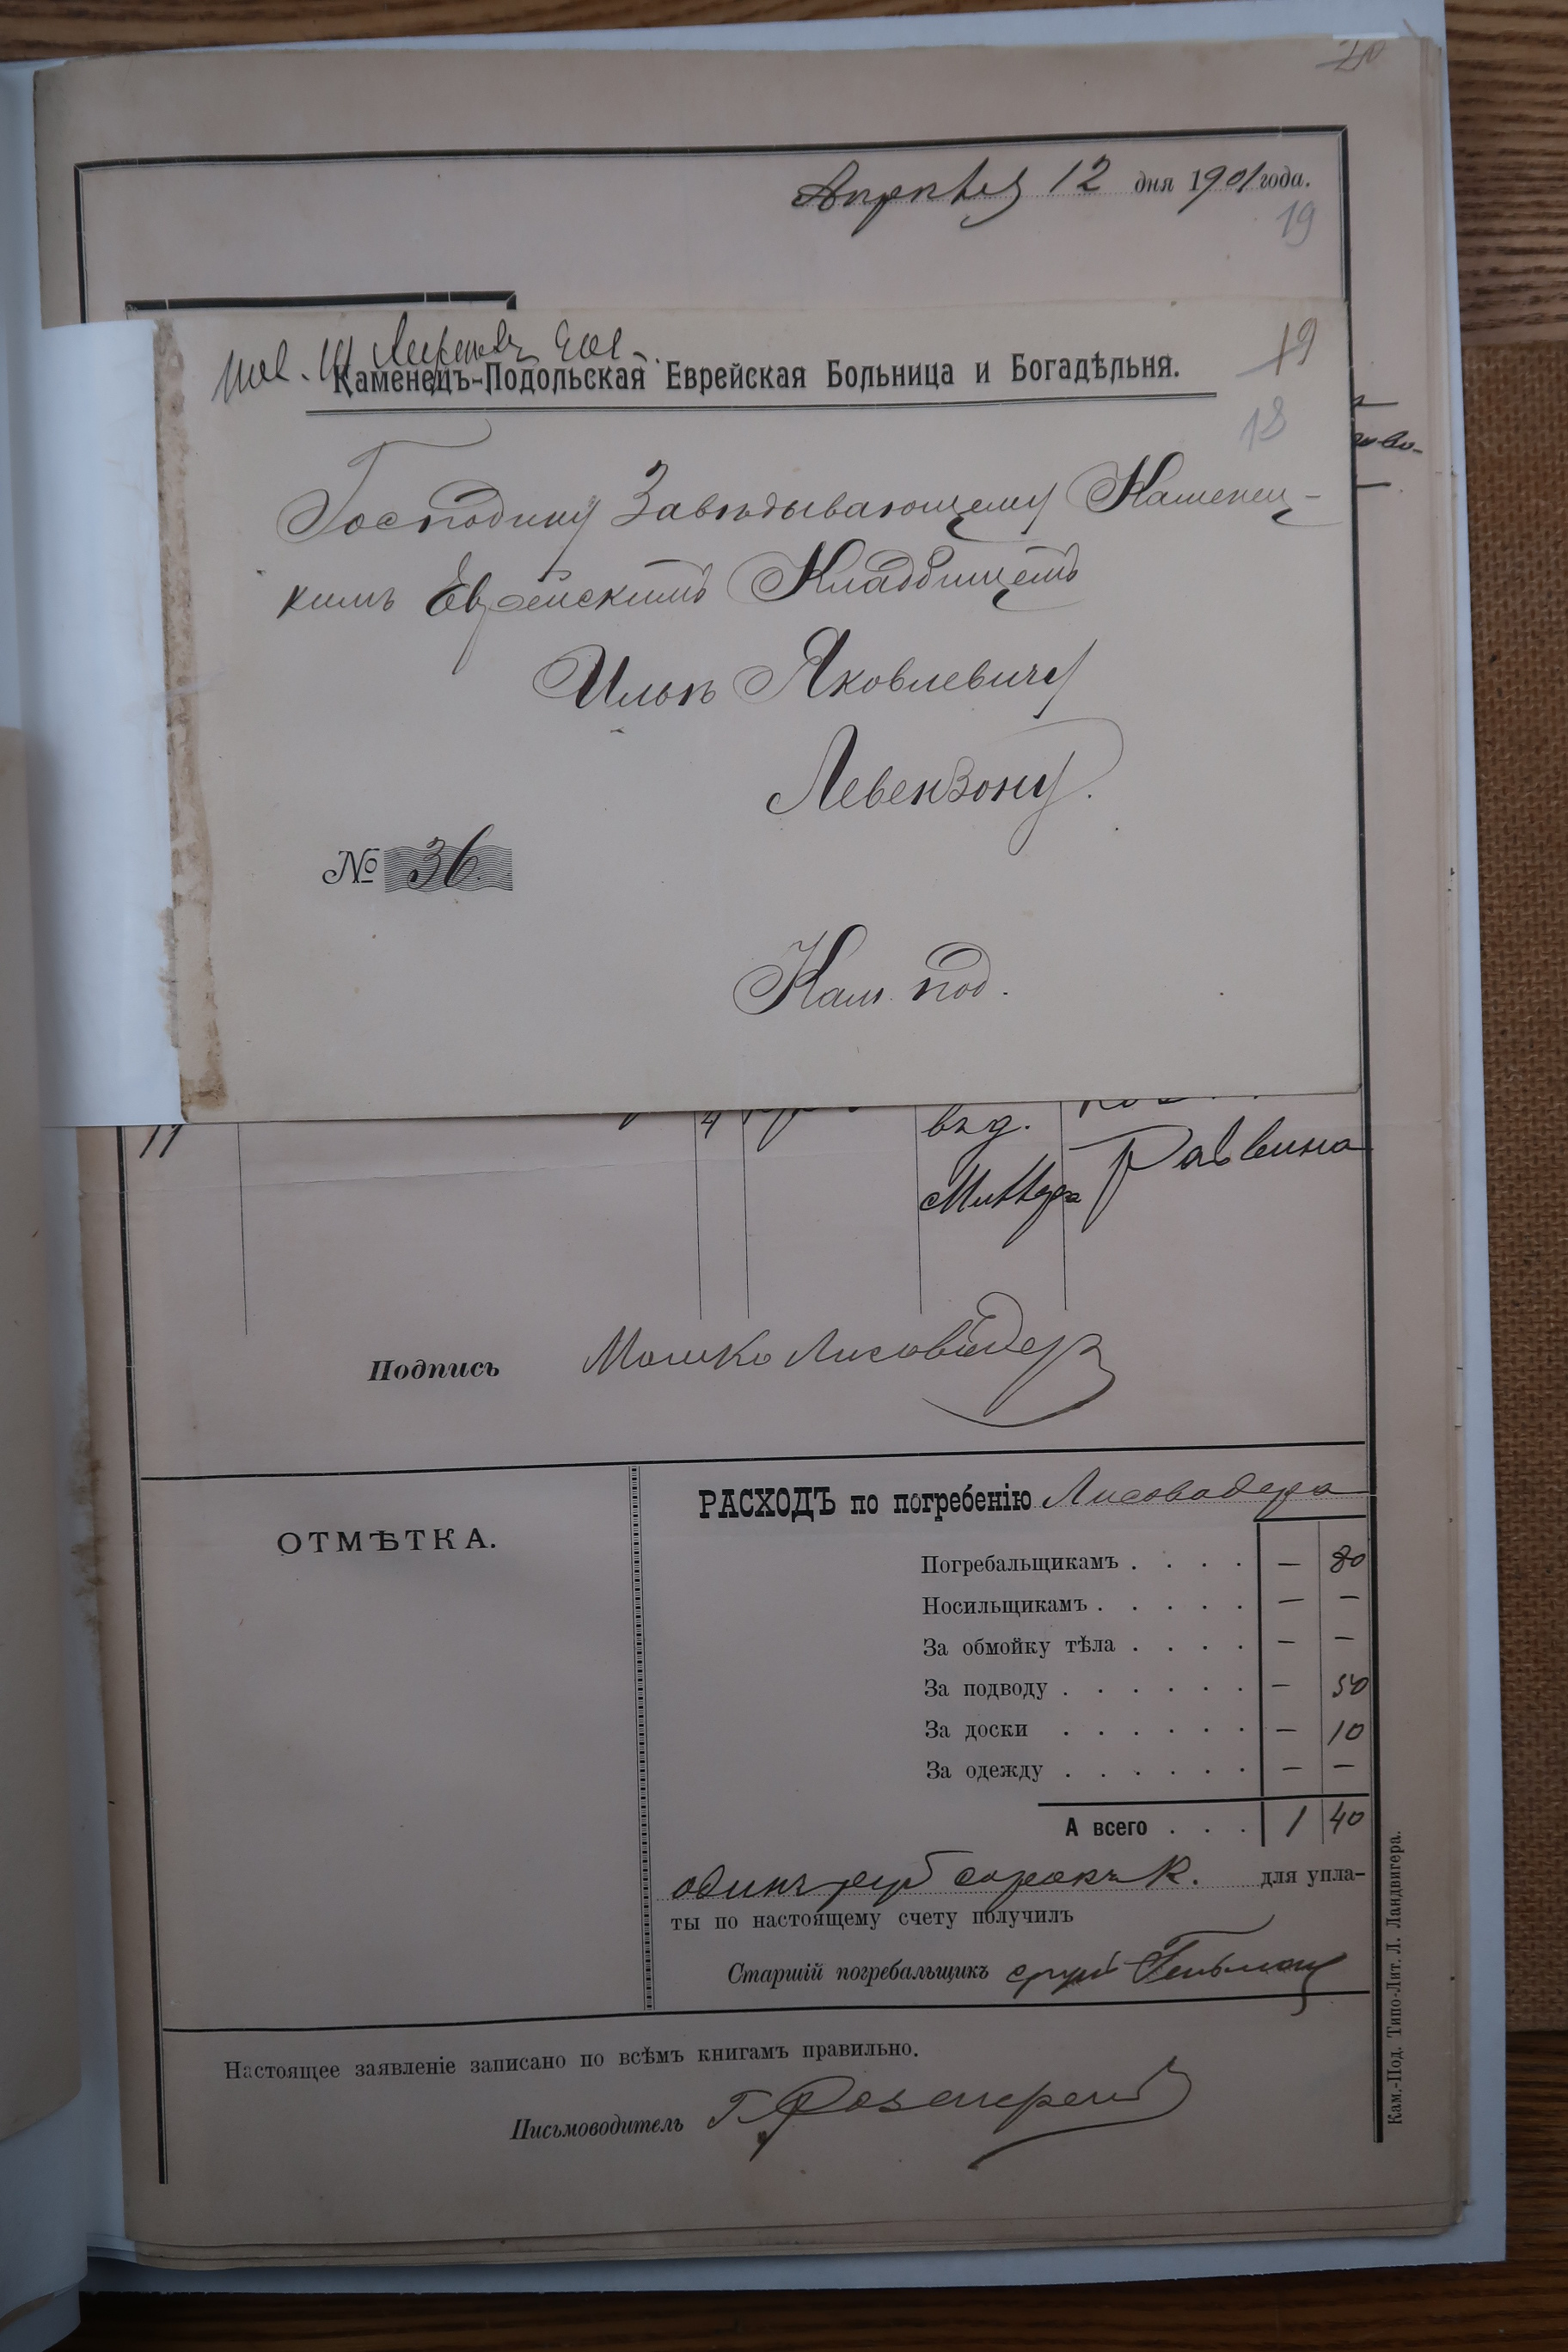 20
Апрѣля 12 дня 1901 года.
19
Каменецъ-Подольская Еврейская Больница и Богадѣльня.
19
18
Господину Завѣдывающему Каменец-
кимъ Еврейскимъ Кладбищемъ
Ильѣ Яковлевичу
Левензону.
№ 36.
Кам. под.
11
4
вѣд.
Раввина
Подпись Мошко Лисоводеръ
ОТМѢТКА.
РАСХОДЪ по погребенію Лисоводера
Погребальщикамъ . . . . — 80
Носильщикамъ . . . . . — —
За обмойку тѣла . . . . — —
За подводу . . . . . . — 50
За доски . . . . . . — 10
За одежду . . . . . . — —
А всего . . . 1 40
одинъ руб сорокъ к. для упла-
ты по настоящему счету получилъ
Старшій погребальщикъ Сруль Гельман
Настоящее заявленіе записано по всѣмъ книгамъ правильно.
Письмоводитель Г.
Кам.-Под. Типо-Лит. Л. Ландвигера.